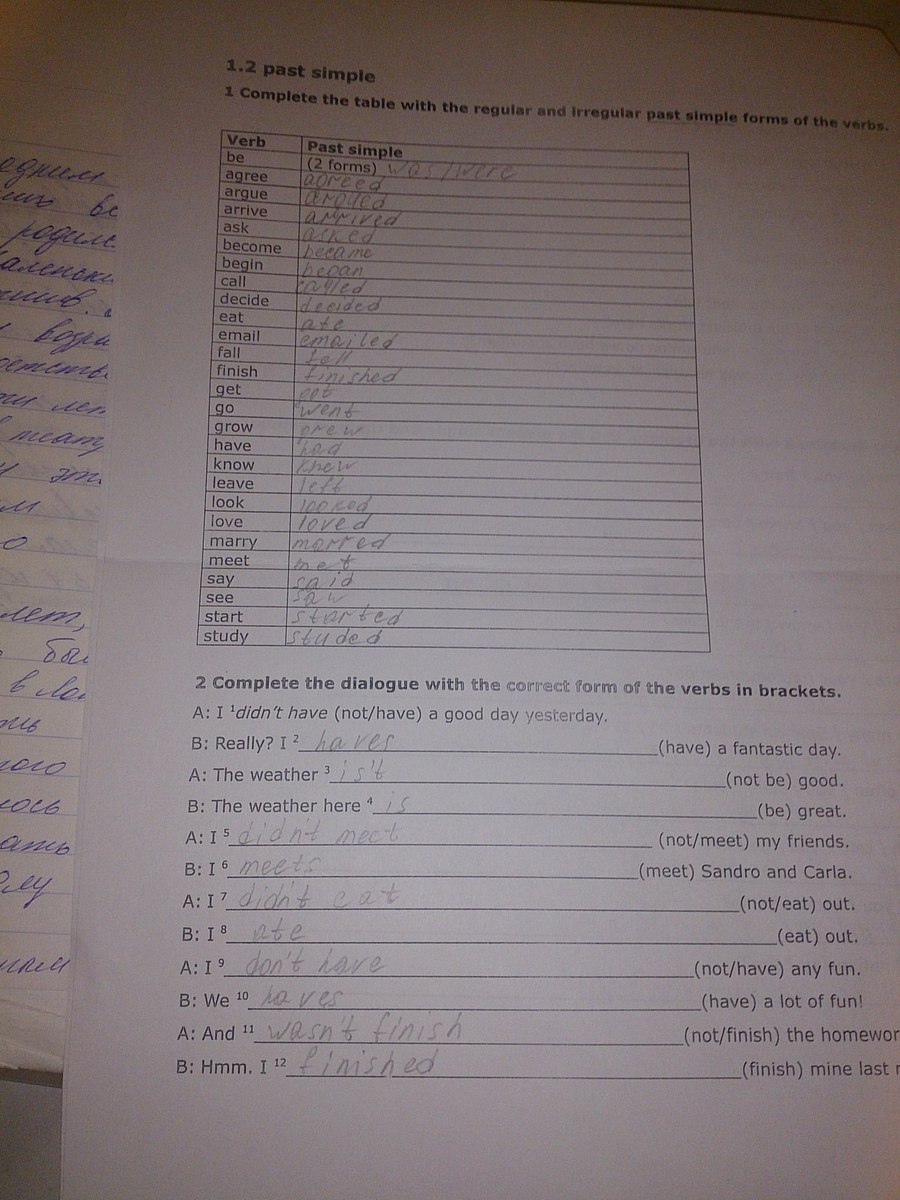 одним
родилс
аленьки
возра
лет,
бы
в Ло
ого
лось
ать
1.2 past simple
1 Complete the table with the regular and irregular past simple forms of the verbs.
Verb Past simple
be (2 forms) was/were
agree agreed
argue argued
arrive arrived
ask asked
become became
begin began
call called
decide decided
eat ate
email emailed
fall fell
finish finished
get got
go went
grow grew
have had
know knew
leave left
look looked
love loved
marry marred
meet met
say said
see saw
start started
study studed
2 Complete the dialogue with the correct form of the verbs in brackets.
A: I ¹didn't have (not/have) a good day yesterday.
B: Really? I ² haves (have) a fantastic day.
A: The weather ³ is't (not be) good.
B: The weather here ⁴ is (be) great.
A: I ⁵ didn't meet (not/meet) my friends.
B: I ⁶ meets (meet) Sandro and Carla.
A: I ⁷ didn't eat (not/eat) out.
B: I ⁸ ate (eat) out.
A: I ⁹ don't have (not/have) any fun.
B: We ¹⁰ haves (have) a lot of fun!
A: And ¹¹ wasn't finish (not/finish) the homewor
B: Hmm. I ¹² finished (finish) mine last